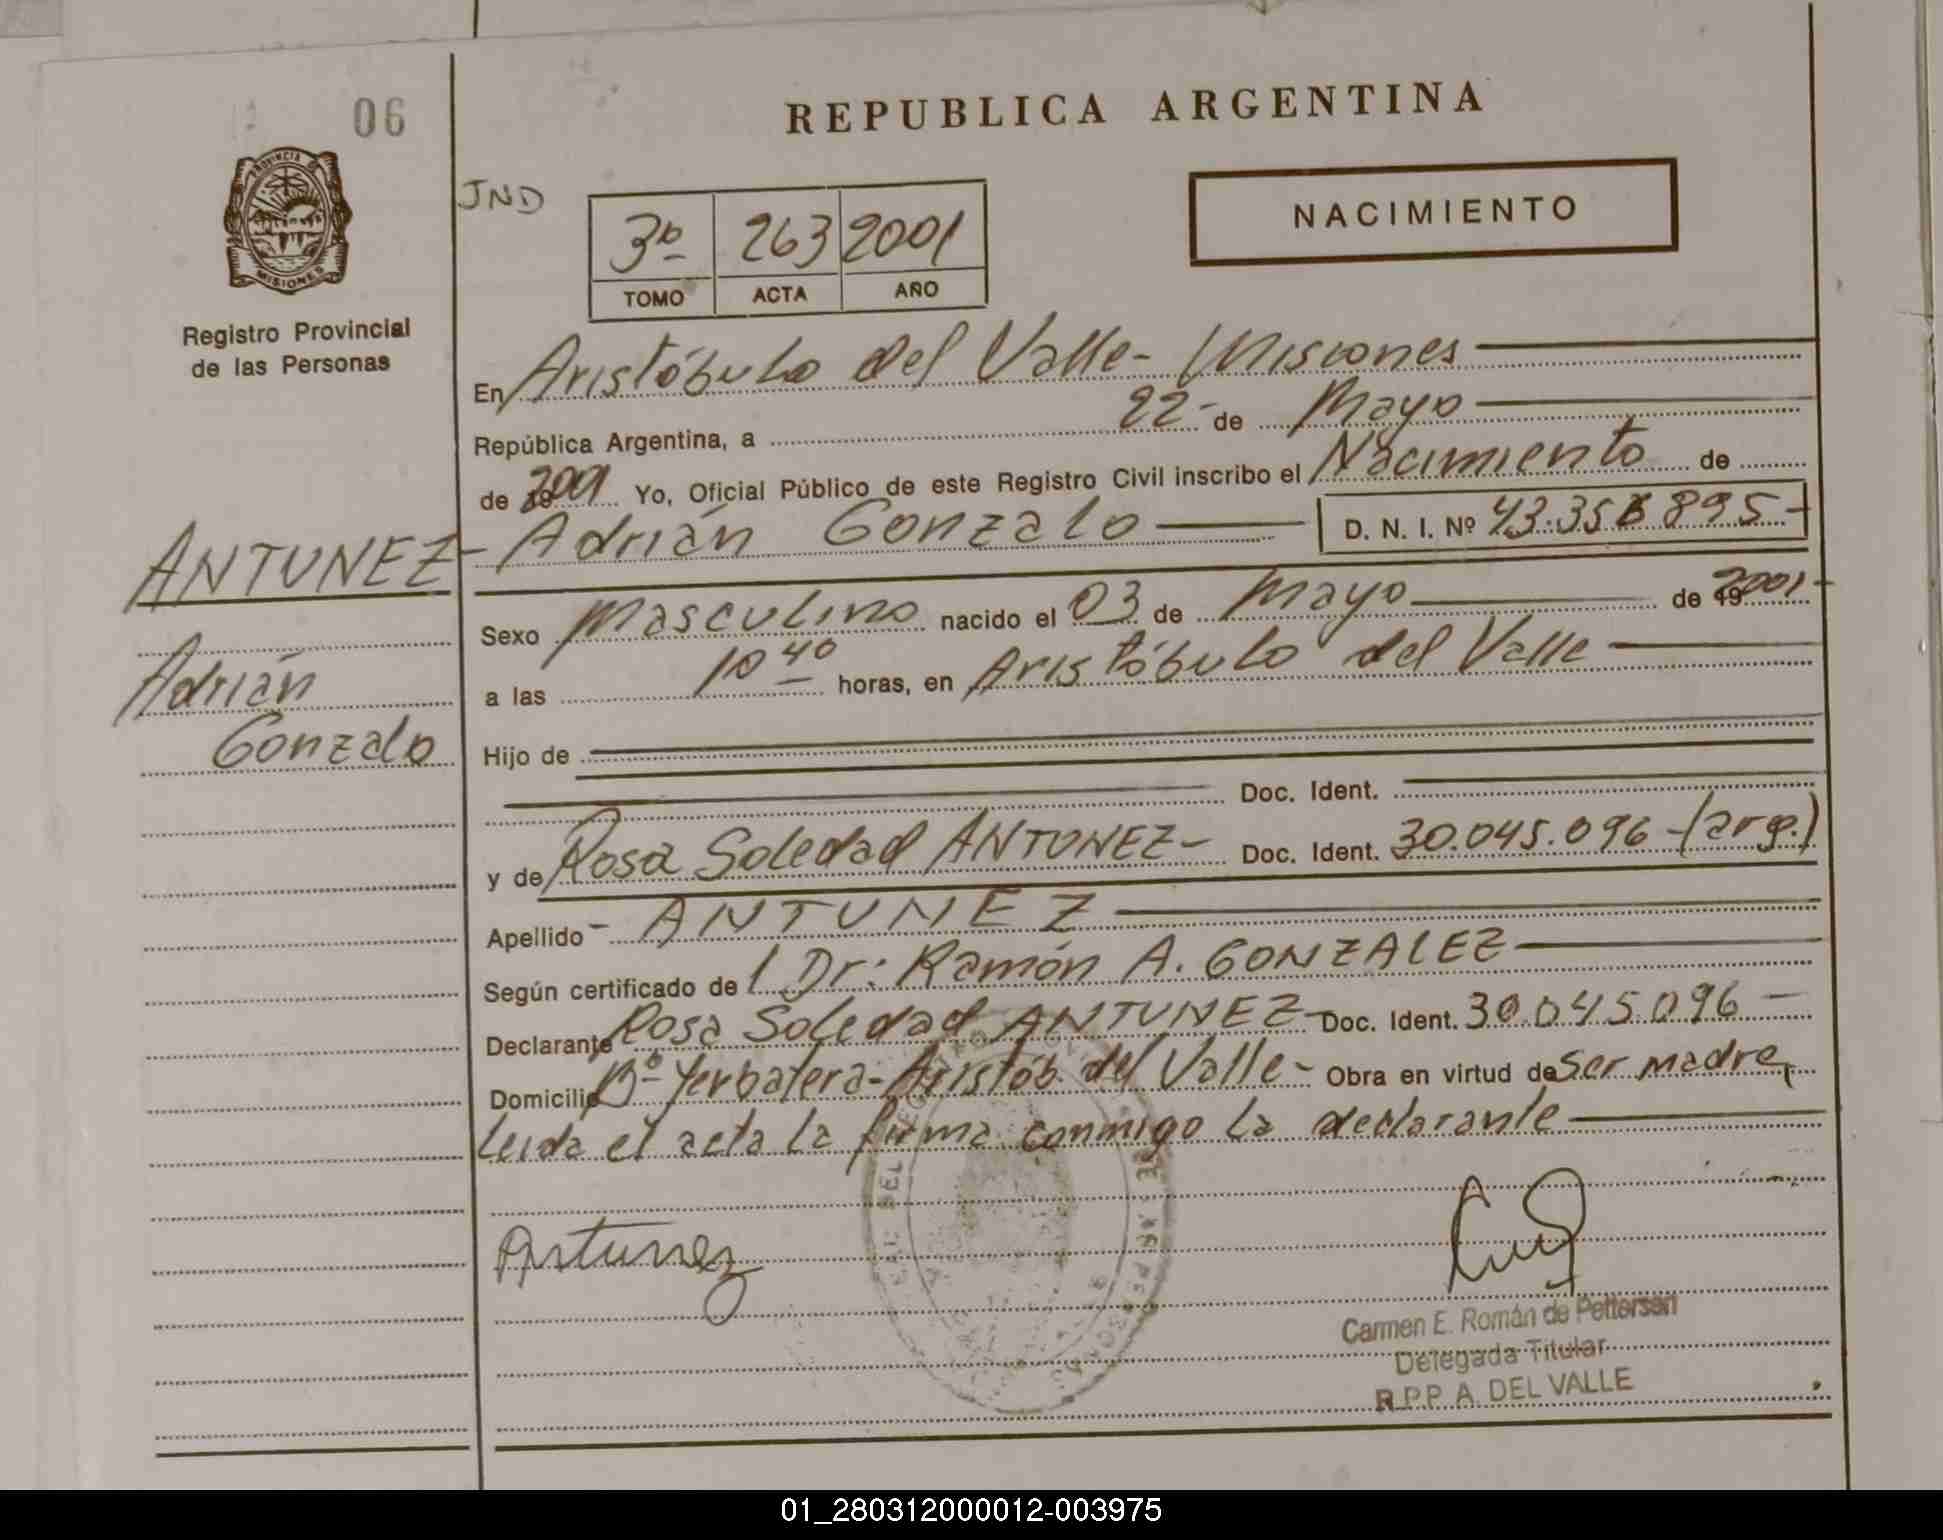 06
REPUBLICA ARGENTINA
PROVINCIA DE
MISIONES
Registro Provincial
de las Personas
JND
3º 263 2001
TOMO ACTA AÑO
NACIMIENTO
En Aristóbulo del Valle- Misiones
República Argentina, a 22- de Mayo
de 2001 Yo, Oficial Público de este Registro Civil inscribo el Nacimiento de
ANTUNEZ- Adrián Gonzalo D. N. I. Nº
Sexo Masculino nacido el 03 de Mayo de 2001-
Adrián
Gonzalo
a las 10 40 horas, en Aristóbulo del Valle
Hijo de
Doc. Ident.
y de Rosa Soledad ANTUNEZ- Doc. Ident. 30.045.096-(arg.)
Apellido- ANTUNEZ
Según certificado de l Dr: Ramón A. GONZALEZ
Declarante Rosa Soledad ANTUNEZ- Doc. Ident. 30.045.096-
Domicilio Bº Yerbatera- Aristób. del Valle- Obra en virtud de ser madre,
Leida el acta la firma conmigo la declarante
Antunez
Carmen E. Román de Pettersen
Delegada Titular
R.P.P. A. DEL VALLE
01_280312000012-003975